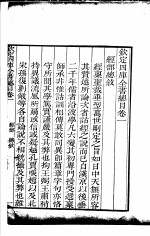 欽定四庫全書總目卷一
經部總敘
經稟聖裁垂型萬世刪定之旨如日中天無所容
其贊述所論次者詁經之說而已自漢京以後垂
二千年儒者沿波學凡六變其初專門授受遞
師承非惟詁訓相傳莫敢同異即篇章字句亦
恪守所聞其學篤實謹嚴及其弊也拘王弼王肅稍
持異議流風所扇或信或疑越孔賈啖趙以及北
宋孫復劉敞等各自論說不相統攝及其弊也雜